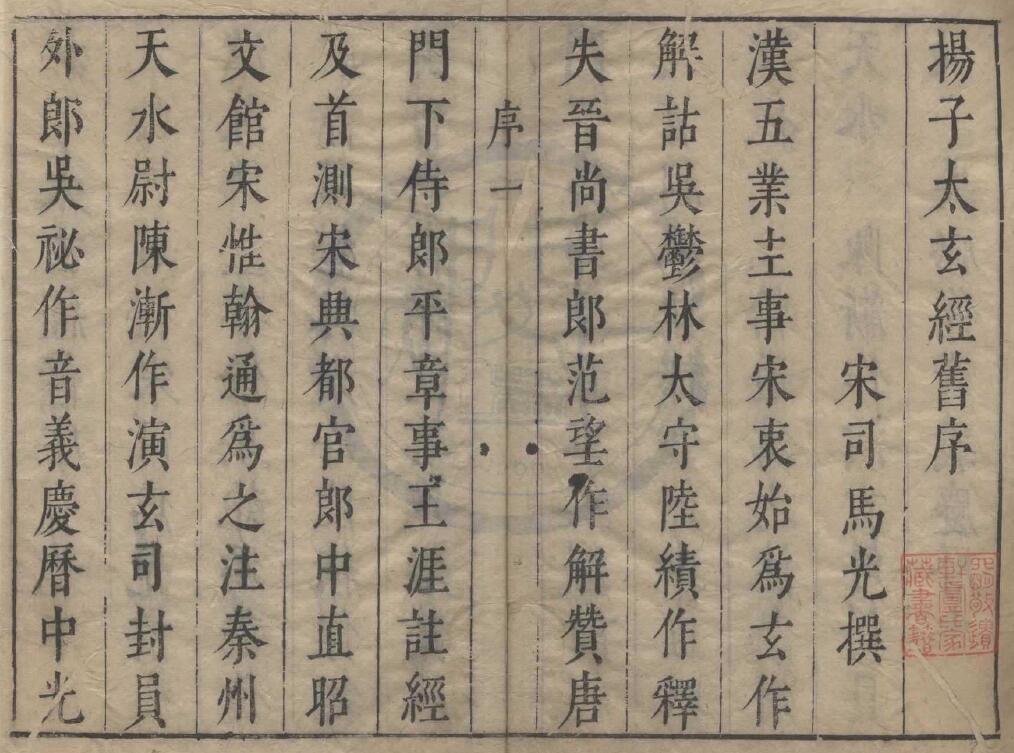 揚子太玄經舊序
宋司馬光撰
漢五業主事宋衷始爲玄作
解詁吳鬱林太守陸績作釋
失晉尚書郎范望作解贊唐
序一
門下侍郎平章事王涯註經
及首測宋典都官郎中直昭
文館宋惟翰通爲之注秦州
天水尉陳漸作演玄司封員
外郎吳祕作音義慶曆中光